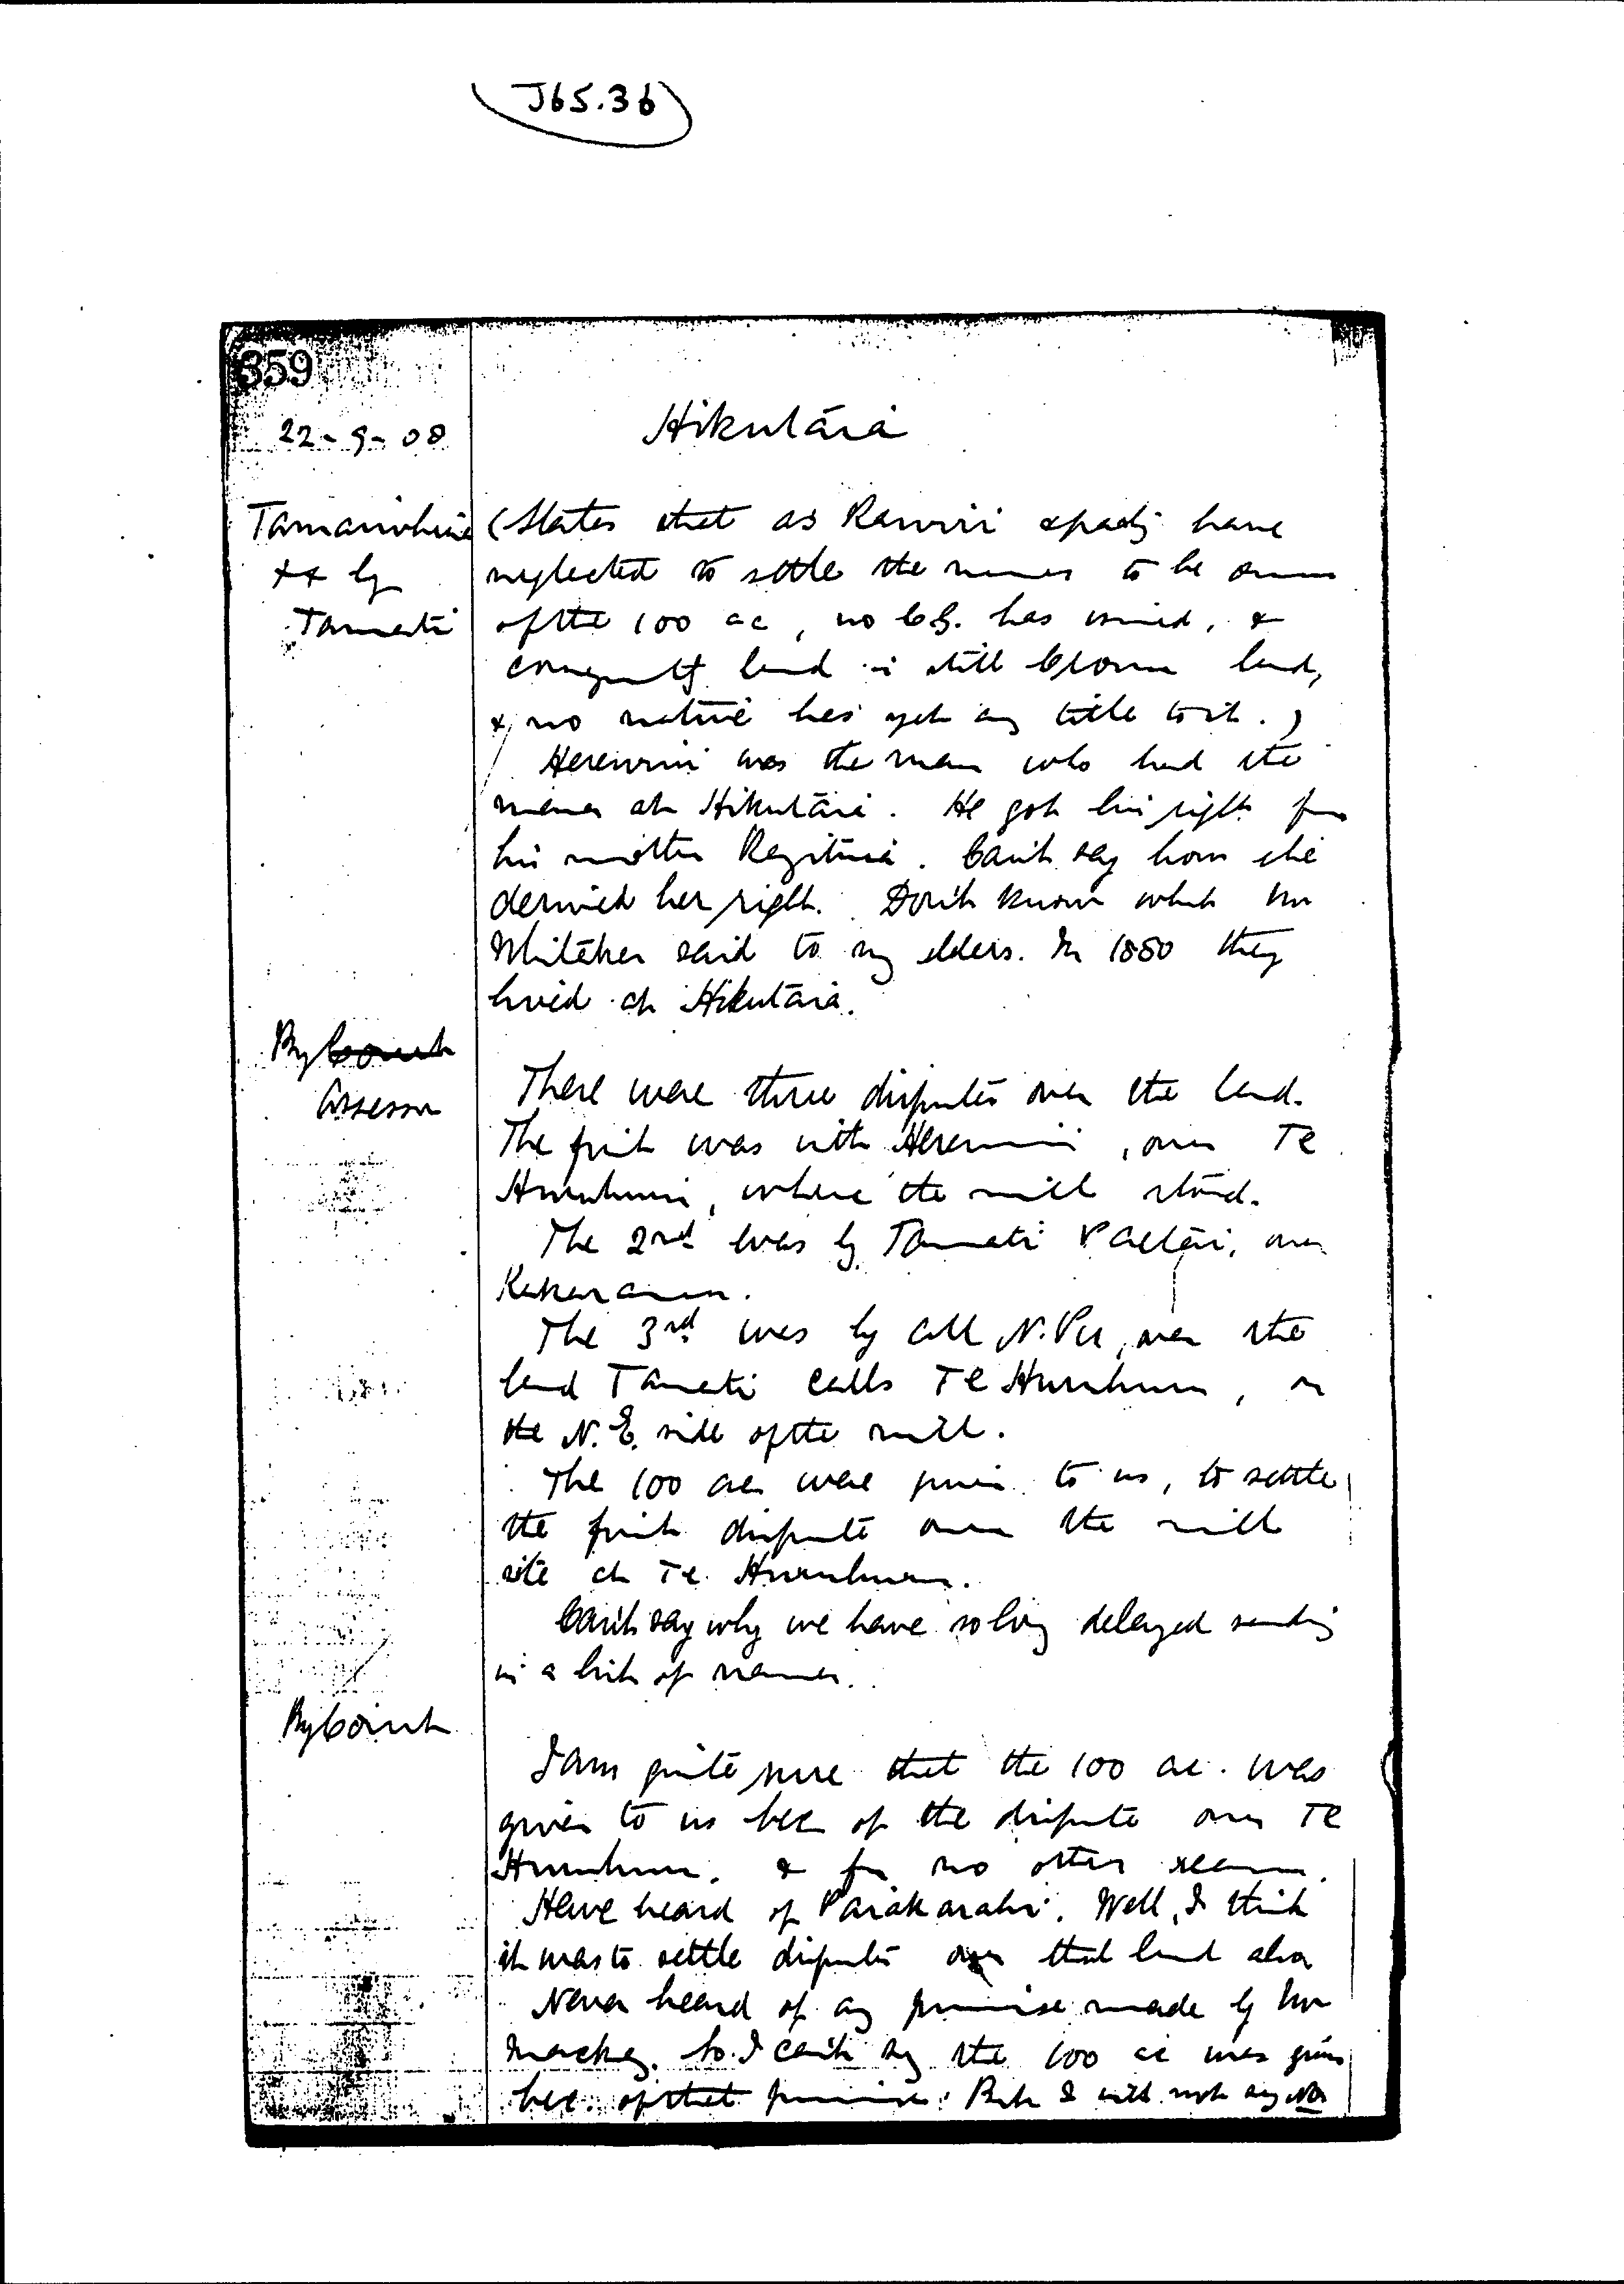 J65.36
359
22-9-08
Hikutaia
Tamariwhina
xx by
Tamati
(States that as Rawiri & party have
neglected to settle the names to be owners
of the 100 ac, no C.G. has issued, &
consequently land is still Crown land,
& no native has yet any title to it.)
Herewini was the man who had the
mana at Hikutaia. He got his right from
his mother. Can't say how she
derived her right. Don't know what Mr
Whitaker said to my elders. In 1880 they
lived at Hikutaia.
By Court
Assessor
There were three disputes over the land.
The first was with Herewini, over Te
Huruhuru, where the mill stood.
The 2nd was by Tamati Paetai, over
The 3rd was by all N. Pu, over the
land Tamati calls Te Huruhuru, on
the N.E. side of the mill.
The 100 acres were given to us, to settle
the first dispute over the mill
site at Te Huruhuru.
Can't say why we have so long delayed sending
in a list of names.
By Court
I am quite sure that the 100 ac. was
given to us bec of the dispute over Te
Huruhuru, & for no other reason.
Have heard of Parakarahi. Well, I think
it was to settle disputes over that land also
Never heard of any promise made by Mr
Mackay. So I can't say the 100 ac was given
bec. of that promise. But I will not say no